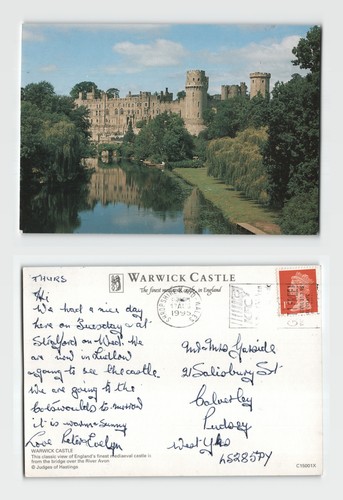 THURS
WARWICK CASTLE
The finest mediaeval castle in England
Hi
We had a nice day
here on Tuesday & at
Stratford on Wed. We
are now in Ludlow
agoing to see the castle
We are going to the
Cotswolds to morrow
it is warm & sunny
Love Peter Evelyn
1995
Mr & Mrs
21 Salisbury St
Calverley
Pudsey
West Yks
LS28 5PY
WARWICK CASTLE
This classic view of England's finest mediaeval castle is
from the bridge over the River Avon
© Judges of Hastings
C15001X